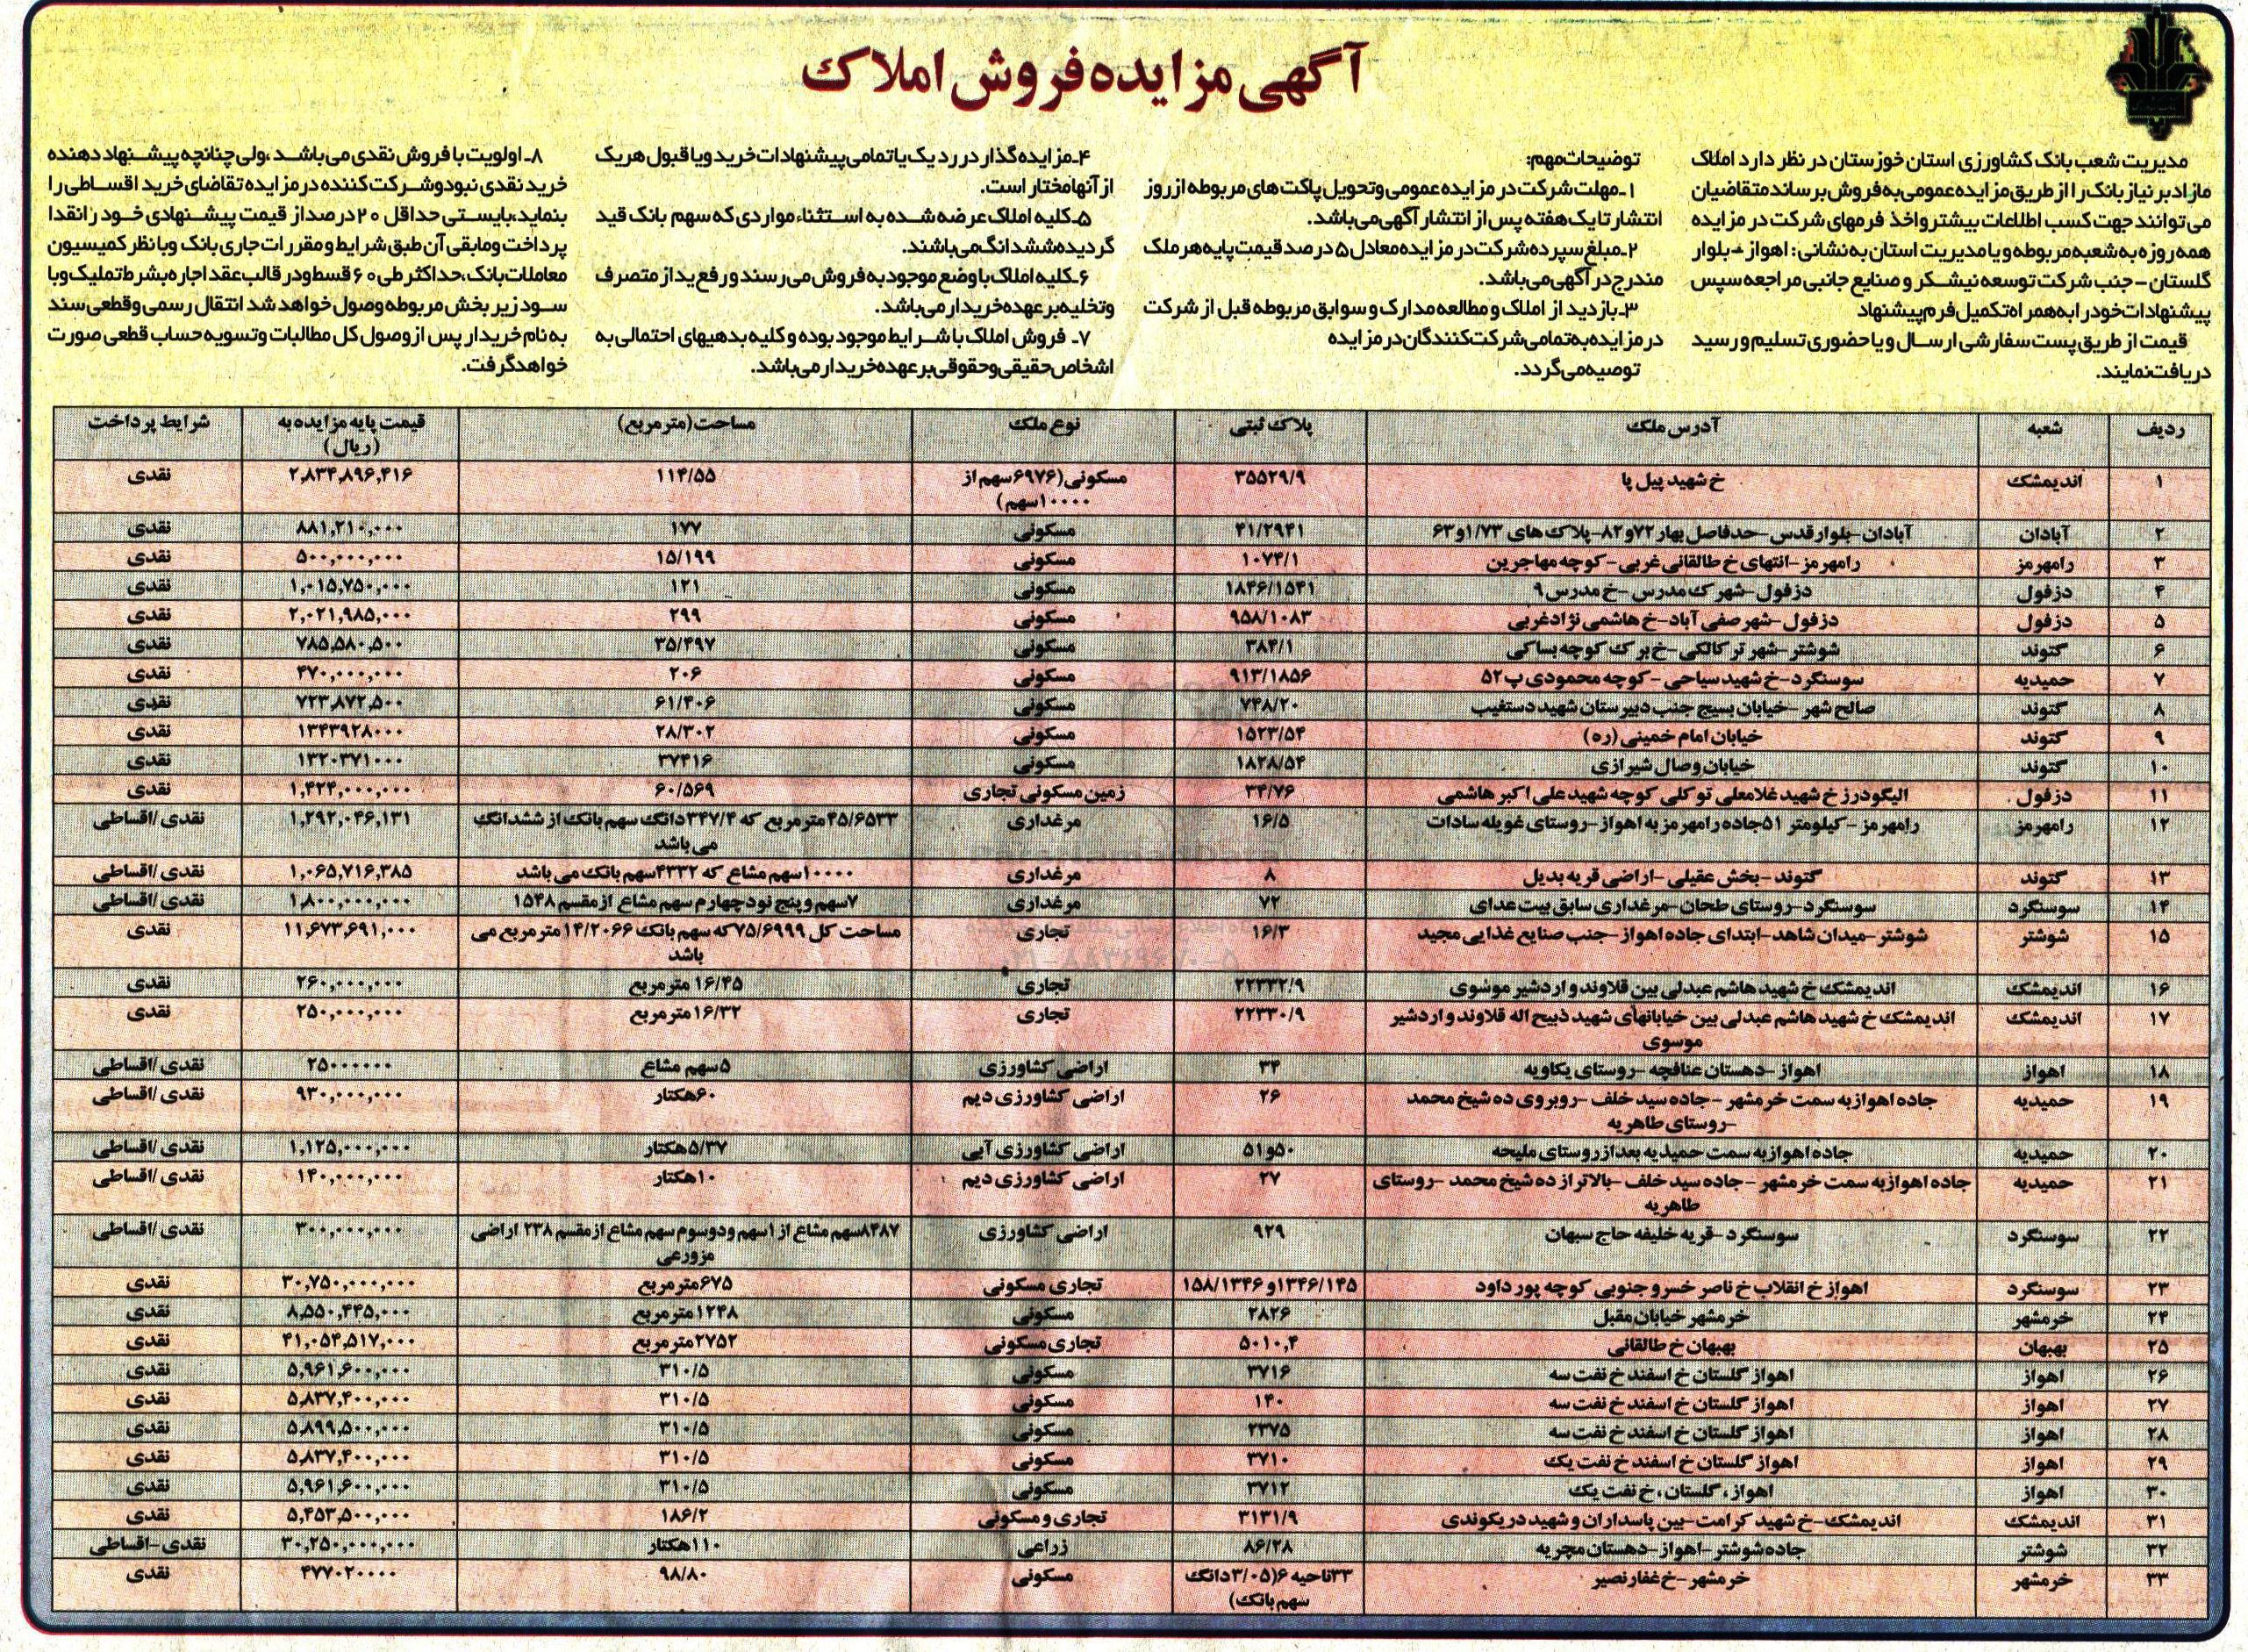 آگهی مزایده فروش املاک
مدیریت شعب بانک کشاورزی استان خوزستان در نظر دارد املاک
مازاد بر نیاز بانک را از طریق مزایده عمومی به فروش برساند متقاضیان
می توانند جهت کسب اطلاعات بیشتر و اخذ فرمهای شرکت در مزایده
همه روزه به شعبه مربوطه و یا مدیریت استان به نشانی: اهواز - بلوار
گلستان - جنب شرکت توسعه نیشکر و صنایع جانبی مراجعه سپس
پیشنهادات خود را به همراه تکمیل فرم پیشنهاد
قیمت از طریق پست سفارشی ارسال و یا حضوری تسلیم و رسید
دریافت نمایند.
توضیحات مهم:
۱-مهلت شرکت در مزایده عمومی و تحویل پاکت های مربوطه از روز
انتشار تا یک هفته پس از انتشار آگهی می باشد.
۲-مبلغ سپرده شرکت در مزایده معادل ۵ درصد قیمت پایه هر ملک
مندرج در آگهی می باشد.
۳-بازدید از املاک و مطالعه مدارک و سوابق مربوطه قبل از شرکت
در مزایده به تمامی شرکت کنندگان در مزایده
توصیه می گردد.
۴-مزایده گذار در رد یک یا تمامی پیشنهادات خرید و یا قبول هر یک
از آنها مختار است.
۵-کلیه املاک عرضه شده به استثناء مواردی که سهم بانک قید
گردیده ششدانگ می باشند.
۶-کلیه املاک با وضع موجود به فروش می رسند و رفع ید از متصرف
و تخلیه بر عهده خریدار می باشد.
۷- فروش املاک با شرایط موجود بوده و کلیه بدهیهای احتمالی به
اشخاص حقیقی و حقوقی بر عهده خریدار می باشد.
۸- اولویت با فروش نقدی می باشد ،ولی چنانچه پیشنهاد دهنده
خرید نقدی نبود و شرکت کننده در مزایده تقاضای خرید اقساطی را
بنماید،بایستی حداقل ۲۰ درصد از قیمت پیشنهادی خود را نقدا
پرداخت و مابقی آن طبق شرایط و مقررات جاری بانک و با نظر کمیسیون
معاملات بانک، حداکثر طی ۶۰ قسط و در قالب عقد اجاره بشرط تملیک و با
سود زیر بخش مربوطه وصول خواهد شد انتقال رسمی و قطعی سند
به نام خریدار پس از وصول کل مطالبات و تسویه حساب قطعی صورت
خواهد گرفت.
ردیف شعبه آدرس ملک پلاک ثبتی نوع ملک مساحت (متر مربع) قیمت پایه مزایده به (ریال) شرایط پرداخت
۱ اندیمشک خ شهید پیل پا ۳۵۵۲۹/۹ مسکونی (۶۹۷۶ سهم از ۱۰۰۰۰ سهم) ۱۱۴/۵۵ ۲,۸۳۴,۸۹۶,۴۱۶ نقدی
۲ آبادان آبادان-بلوار قدس-حدفاصل بهار ۷۲ و ۸۲-پلاک های ۱/۷۳ و ۶۳ ۴۱/۲۹۴۱ مسکونی ۱۷۷ ۸۸۱,۲۱۰,۰۰۰ نقدی
۳ رامهرمز رامهرمز-انتهای خ طالقانی غربی-کوچه مهاجرین ۱۰۷۴/۱ مسکونی ۱۵/۱۹۹ ۵۰۰,۰۰۰,۰۰۰ نقدی
۴ دزفول دزفول-شهرک مدرس-خ مدرس ۹ ۱۸۴۶/۱۵۴۱ مسکونی ۱۲۱ ۱,۰۱۵,۷۵۰,۰۰۰ نقدی
۵ دزفول دزفول-شهر صفی آباد-خ هاشمی نژاد غربی ۹۵۸/۱۰۸۳ مسکونی ۲۹۹ ۲,۰۲۱,۹۸۵,۰۰۰ نقدی
۶ گتوند شوشتر-شهر ترکالکی-خ برک کوچه بساکی ۳۸۴/۱ مسکونی ۳۵/۴۹۷ ۷۸۵,۵۸۰,۵۰۰ نقدی
۷ حمیدیه سوسنگرد-خ شهید سیاحی-کوچه محمودی پ ۵۲ ۹۱۳/۱۸۵۶ مسکونی ۲۰۶ ۴۷۰,۰۰۰,۰۰۰ نقدی
۸ گتوند صالح شهر-خیابان بسیج جنب دبیرستان شهید دستغیب ۷۴۸/۲۰ مسکونی ۶۱/۴۰۶ ۷۲۳,۸۷۲,۵۰۰ نقدی
۹ گتوند خیابان امام خمینی (ره) ۱۵۲۳/۵۴ مسکونی ۲۸/۳۰۲ ۱۳۴۳۹۲۸۰۰۰ نقدی
۱۰ گتوند خیابان وصال شیرازی ۱۸۲۸/۵۴ مسکونی ۳۷۴۱۶ ۱۳۲۰۳۷۱۰۰۰ نقدی
۱۱ دزفول الیگودرز خ شهید غلامعلی توکلی کوچه شهید علی اکبر هاشمی ۳۴/۷۶ زمین مسکونی تجاری ۶۰/۵۶۹ ۱,۴۲۴,۰۰۰,۰۰۰ نقدی
۱۲ رامهرمز رامهرمز-کیلومتر ۵۱ جاده رامهرمز به اهواز-روستای غویله سادات ۱۶/۵ مرغداری ۴۵/۶۵۳۳ متر مربع که ۳۴۷/۴ دانگ سهم بانک از ششدانگ می باشد ۱,۲۹۲,۰۴۶,۱۳۱ نقدی/اقساطی
۱۳ گتوند گتوند-بخش عقیلی-اراضی قریه بدیل ۸ مرغداری ۱۰۰۰۰ سهم مشاع که ۴۳۳۲ سهم بانک می باشد ۱,۰۶۵,۷۱۶,۳۸۵ نقدی/اقساطی
۱۴ سوسنگرد سوسنگرد-روستای طحان-مرغداری سابق بیت عدای ۷۲ مرغداری ۷ سهم و پنج نود چهارم سهم مشاع از مقسم ۱۵۴۸ ۱,۸۰۰,۰۰۰,۰۰۰ نقدی/اقساطی
۱۵ شوشتر شوشتر-میدان شاهد-ابتدای جاده اهواز-جنب صنایع غذایی مجید ۱۶/۳ تجاری مساحت کل ۷۵/۶۹۹۹ که سهم بانک ۱۴/۲۰۶۶ متر مربع می باشد ۱۱,۶۷۳,۶۹۱,۰۰۰ نقدی
۱۶ اندیمشک اندیمشک خ شهید هاشم عبدلی بین قلاوند و اردشیر موسوی ۲۲۳۳۲/۹ تجاری ۱۶/۴۵ متر مربع ۲۶۰,۰۰۰,۰۰۰ نقدی
۱۷ اندیمشک اندیمشک خ شهید هاشم عبدلی بین خیابانهای شهید ذبیح اله قلاوند و اردشیر موسوی ۲۲۳۳۰/۹ تجاری ۱۶/۳۲ متر مربع ۲۵۰,۰۰۰,۰۰۰ نقدی
۱۸ اهواز اهواز-دهستان عنافچه-روستای یکاویه ۳۴ اراضی کشاورزی ۵ سهم مشاع ۲۵۰۰۰۰۰۰ نقدی/اقساطی
۱۹ حمیدیه جاده اهواز به سمت خرمشهر-جاده سید خلف-روبروی ده شیخ محمد -روستای طاهریه ۲۶ اراضی کشاورزی دیم ۶۰ هکتار ۹۳۰,۰۰۰,۰۰۰ نقدی/اقساطی
۲۰ حمیدیه جاده اهواز به سمت حمیدیه بعد از روستای ملیحه ۵۰ و ۵۱ اراضی کشاورزی آبی ۵/۳۷ هکتار ۱,۱۲۵,۰۰۰,۰۰۰ نقدی/اقساطی
۲۱ حمیدیه جاده اهواز به سمت خرمشهر-جاده سید خلف-بالاتر از ده شیخ محمد-روستای طاهریه ۲۷ اراضی کشاورزی دیم ۱۰ هکتار ۱۴۰,۰۰۰,۰۰۰ نقدی/اقساطی
۲۲ سوسنگرد سوسنگرد-قریه خلیفه حاج سبهان ۹۲۹ اراضی کشاورزی ۸۴۸۷ سهم مشاع از ۱ سهم و دو سوم سهم مشاع از مقسم ۲۳۸ اراضی مزروعی ۳۰۰,۰۰۰,۰۰۰ نقدی/اقساطی
۲۳ سوسنگرد اهواز خ انقلاب خ ناصر خسرو جنوبی کوچه پور داود ۱۳۴۶/۱۴۵ و ۱۵۸/۱۳۴۶ تجاری مسکونی ۶۷۵ متر مربع ۳۰,۷۵۰,۰۰۰,۰۰۰ نقدی
۲۴ خرمشهر خرمشهر خیابان مقبل ۲۸۲۶ مسکونی ۱۲۴۸ متر مربع ۸,۵۵۰,۴۴۵,۰۰۰ نقدی
۲۵ بهبهان بهبهان خ طالقانی ۵۰۱۰,۴ تجاری مسکونی ۲۷۵۲ متر مربع ۴۱,۰۵۴,۵۱۷,۰۰۰ نقدی
۲۶ اهواز اهواز گلستان خ اسفند خ نفت سه ۳۷۱۶ مسکونی ۳۱۰/۵ ۵,۹۶۱,۶۰۰,۰۰۰ نقدی
۲۷ اهواز اهواز گلستان خ اسفند خ نفت سه ۱۴۰ مسکونی ۳۱۰/۵ ۵,۸۳۷,۴۰۰,۰۰۰ نقدی
۲۸ اهواز اهواز گلستان خ اسفند خ نفت سه ۲۳۷۵ مسکونی ۳۱۰/۵ ۵,۸۹۹,۵۰۰,۰۰۰ نقدی
۲۹ اهواز اهواز گلستان خ اسفند خ نفت یک ۳۷۱۰ مسکونی ۳۱۰/۵ ۵,۸۳۷,۴۰۰,۰۰۰ نقدی
۳۰ اهواز اهواز، گلستان، خ نفت یک ۳۷۱۲ مسکونی ۳۱۰/۵ ۵,۹۶۱,۶۰۰,۰۰۰ نقدی
۳۱ اندیمشک اندیمشک-خ شهید کرامت-بین پاسداران و شهید دریکوندی ۳۱۳۱/۹ تجاری و مسکونی ۱۸۶/۲ ۵,۴۵۳,۵۰۰,۰۰۰ نقدی
۳۲ شوشتر جاده شوشتر-اهواز-دهستان مجریه ۸۶/۲۸ زراعی ۱۱۰ هکتار ۳۰,۲۵۰,۰۰۰,۰۰۰ نقدی-اقساطی
۳۳ خرمشهر خرمشهر-خ غفار نصیر ۳۳ ناحیه ۶ (۳/۰۵ دانگ سهم بانک) مسکونی ۹۸/۸۰ ۴۷۷۰۲۰۰۰۰ نقدی